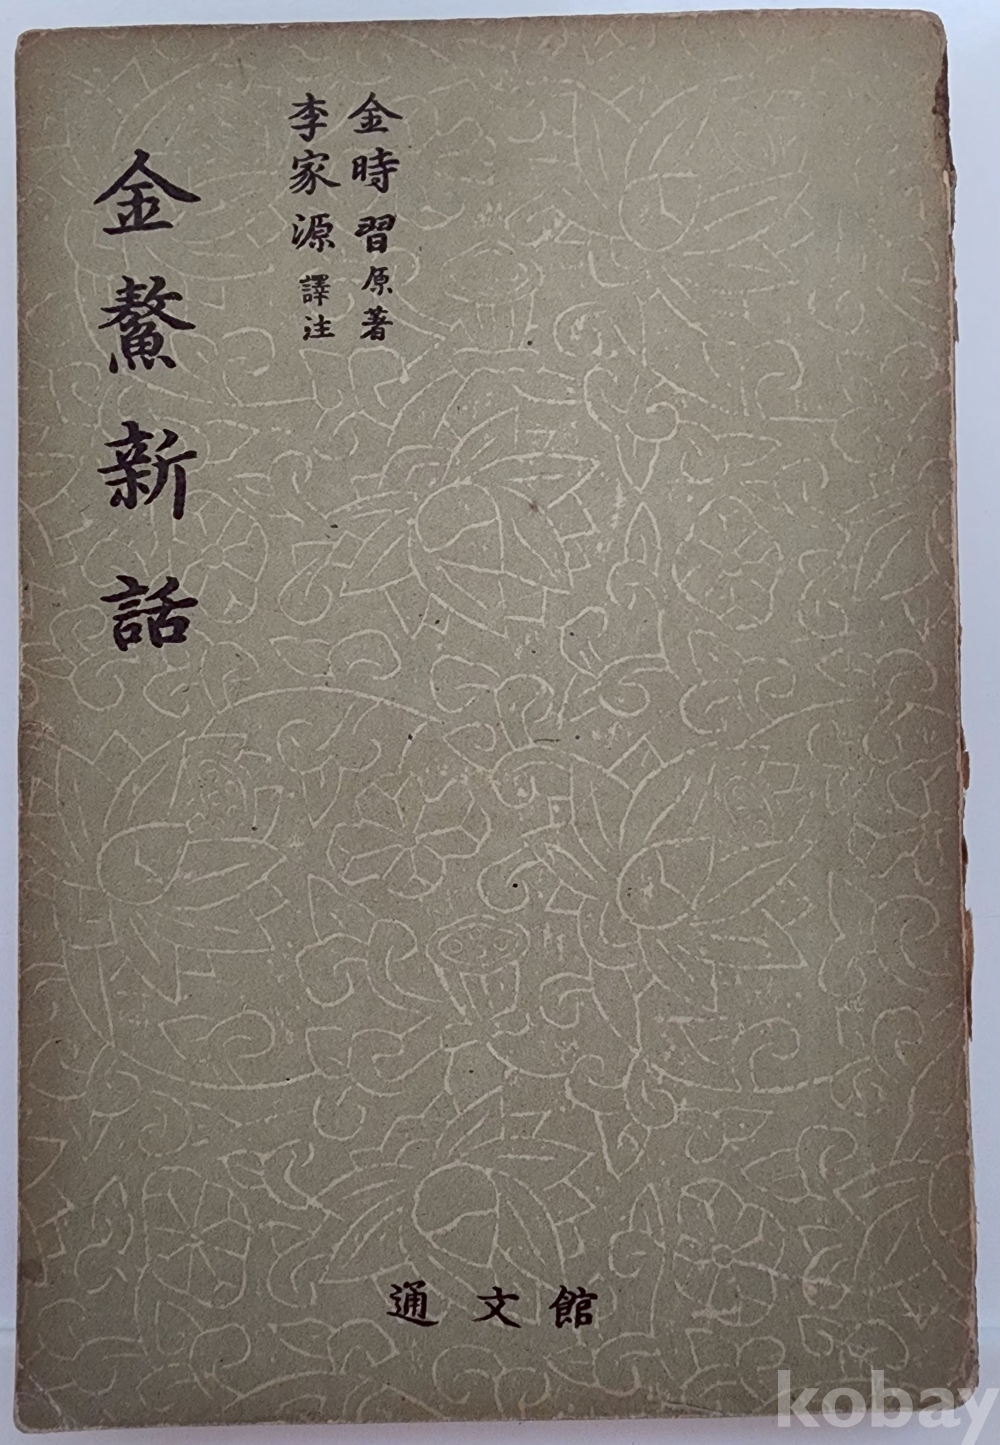 金時習原著
李家源譯注
金鰲新話
通文館
kobay